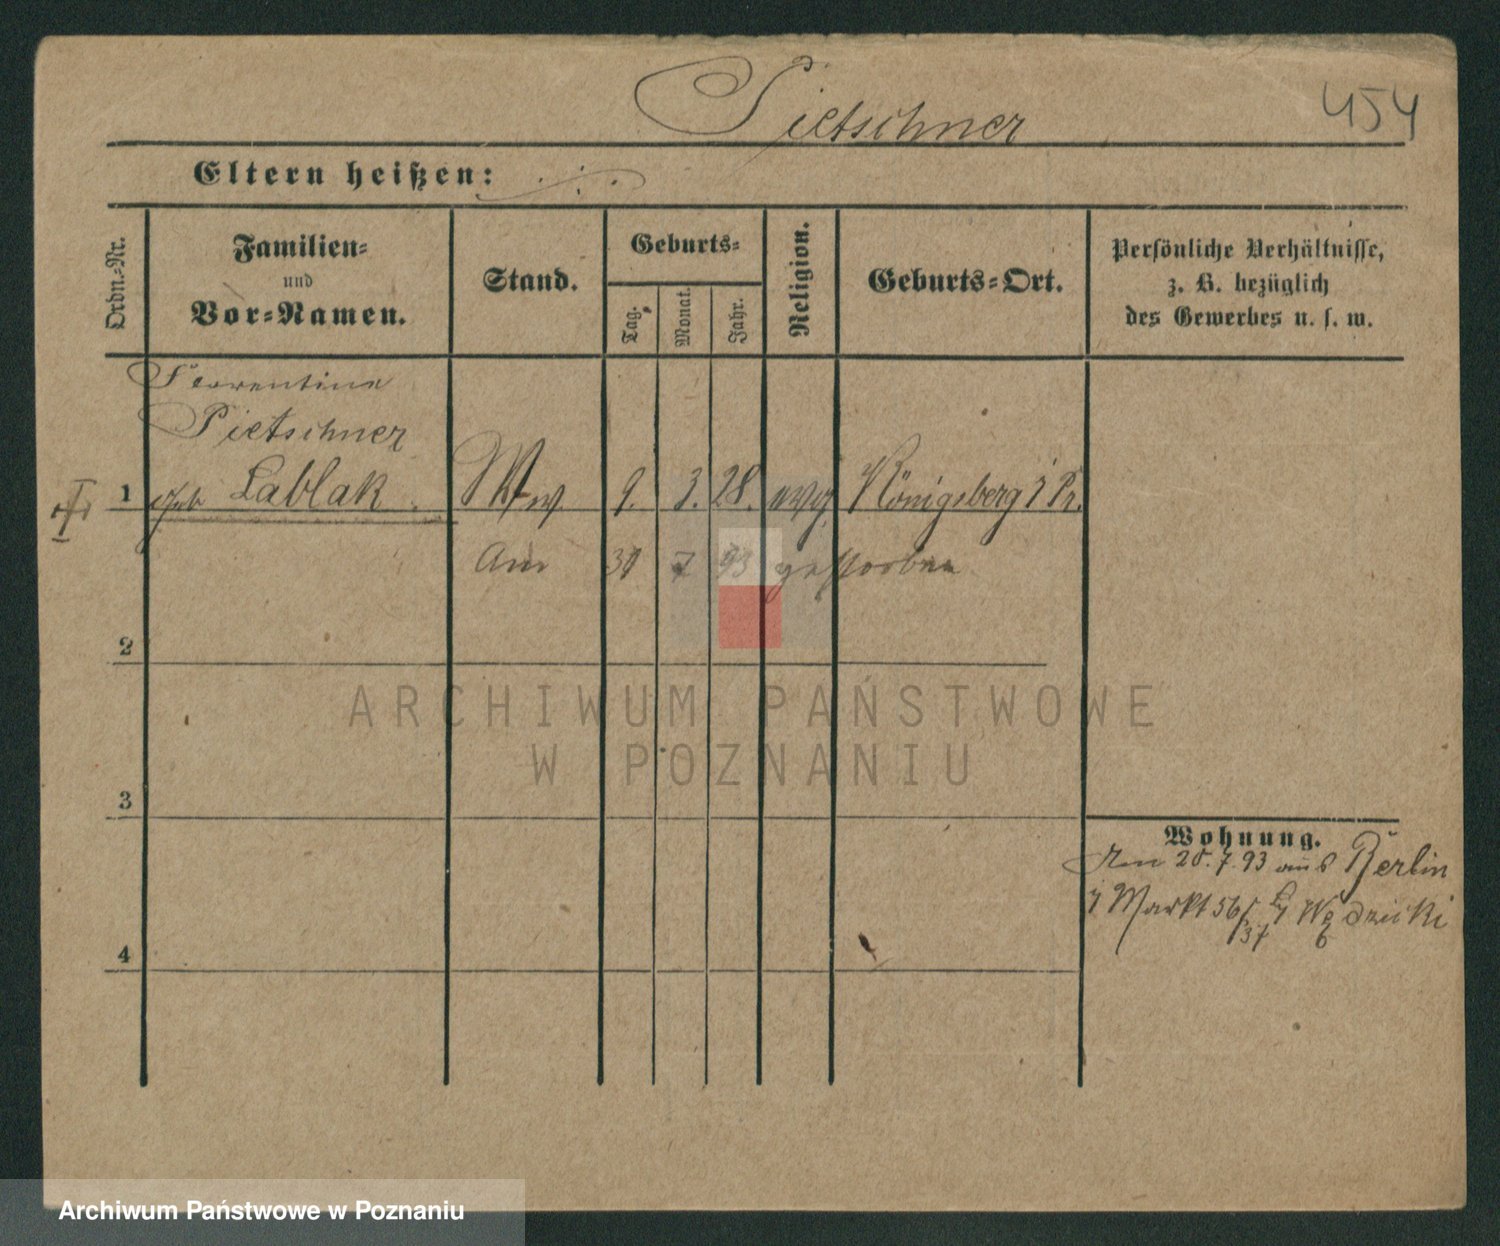 Pietschner
454
Eltern heißen:
Ordn.-Nr.
Familien-
und
Vor-Namen.
Stand.
Geburts-
Tag.
Monat.
Jahr.
Religion.
Geburts-Ort.
Persönliche Verhältnisse,
z. B. bezüglich
des Gewerbes u. s. w.
Florentine
Pietschner
1 geb Lablak. Ww 9. 3. 28. evg. Königsberg i Pr.
Am 31 7 93 gestorben
2
ARCHIWUM PAŃSTWOWE
W POZNANIU
3
Wohnung.
Am 28.7.93 aus Berlin
Markt 56/37
4
Archiwum Państwowe w Poznaniu